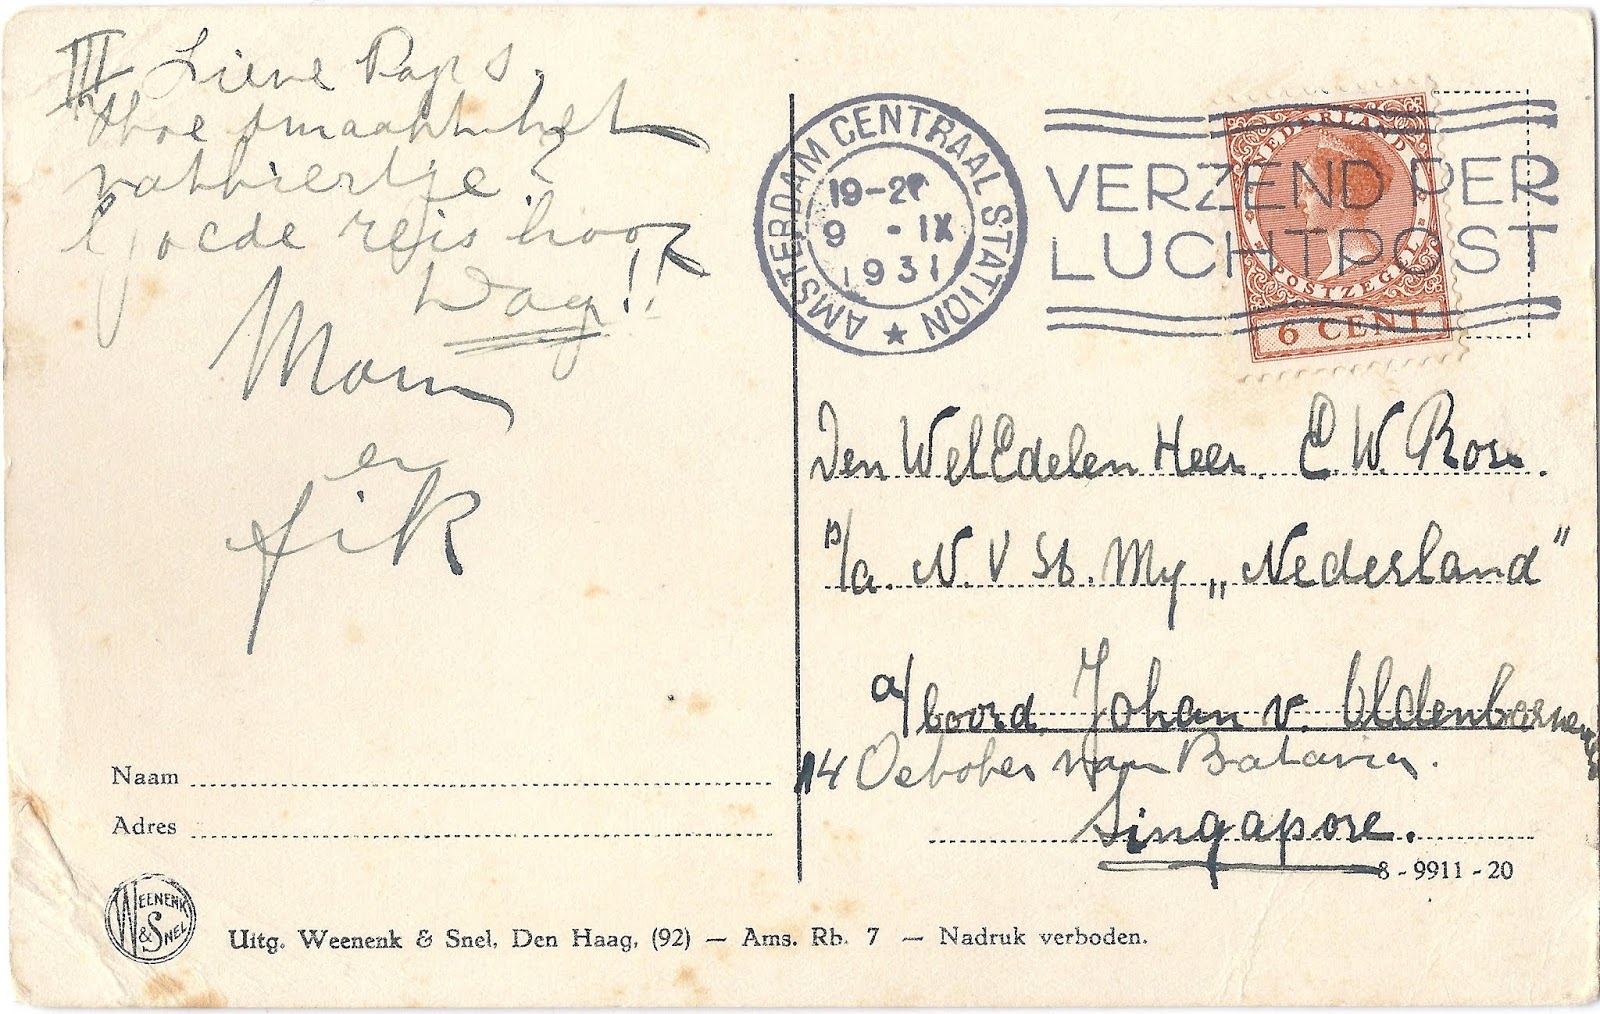 III Lieve Paps,
Hoe smaakt het
rakkiertje?
Goede reis hoor
Dag!!
Mam
en
fik
AMSTERDAM CENTRAAL STATION
19-20
9 - IX
1931
VERZEND PER
LUCHTPOST
NEDERLAND
POSTZEGEL
6 CENT
Den WelEdelen Heer. E.W. Rose.
p/a. N.V St. My „Nederland”
a/boord Johan v. Oldenbarnev
14 October van Batavia.
Singapore.
8-9911-20
Naam
Adres
WEENENK
& SNEL
Uitg. Weenenk & Snel, Den Haag, (92) — Ams. Rb. 7 — Nadruk verboden.